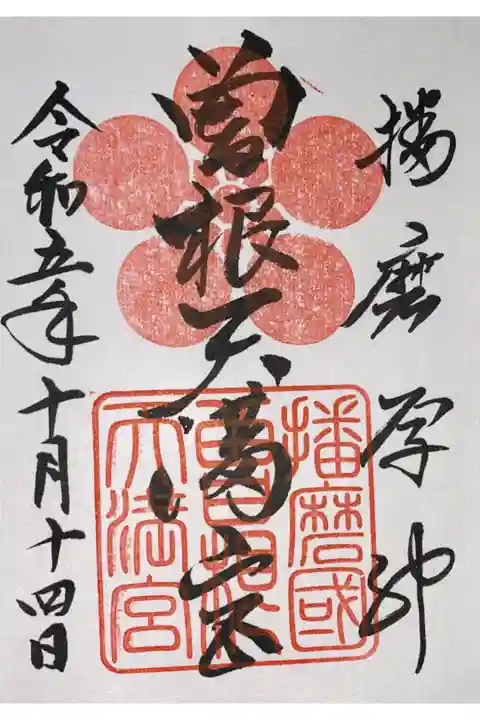 播磨学神
曽根天満宮
令和五年十月十四日
播磨國
曽根
天満宮